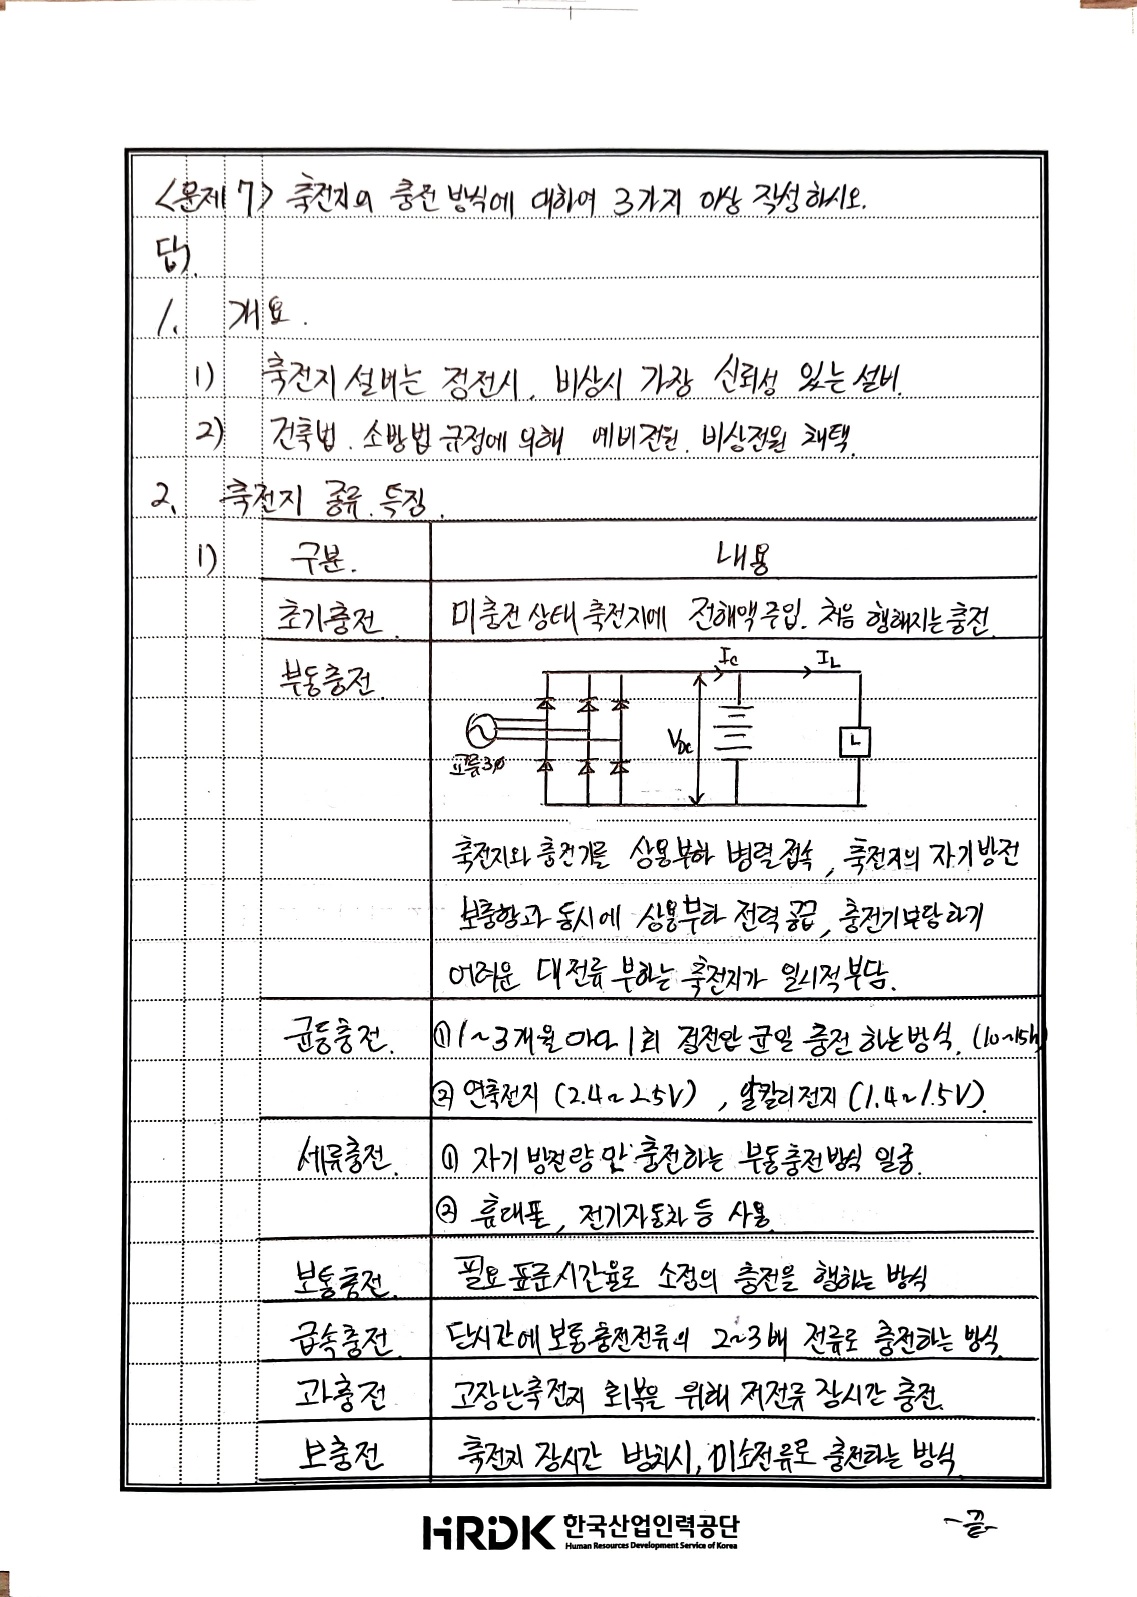 <문제 7> 축전지의 충전 방식에 대하여 3가지 이상 작성하시오.
답).
1. 개요.
1) 축전지 설비는 정전시, 비상시 가장 신뢰성 있는 설비.
2) 건축법. 소방법 규정에 의해 예비전원. 비상전원 채택.
2. 축전지 종류. 특징.
1) 구분. 내용
초기충전. 미충전 상태 축전지에 전해액 주입. 처음 행해지는 충전.
부동충전.
IC IL
VDC L
교류3φ
축전지와 충전기를 상용부하 병렬 접속, 축전지의 자기방전
보충함과 동시에 상용부하 전력 공급, 충전기 부담하기
어려운 대전류 부하는 축전지가 일시적 부담.
균등충전. ① 1~3개월 마다 1회 정전압 균일 충전 하는 방식. (10~15h)
② 연축전지 (2.4~2.5V), 알칼리전지 (1.4~1.5V).
세류충전. ① 자기 방전량 만 충전하는 부동충전 방식 일종.
② 휴대폰, 전기자동차 등 사용.
보통충전. 필요 표준시간율로 소정의 충전을 행하는 방식
급속충전. 단시간에 보통충전전류의 2~3배 전류로 충전하는 방식.
과충전 고장난축전지 회복을 위해 저전류 장시간 충전.
보충전 축전지 장시간 방치시, 미소전류로 충전하는 방식.
HRDK 한국산업인력공단
Human Resources Development Service of Korea
-끝-